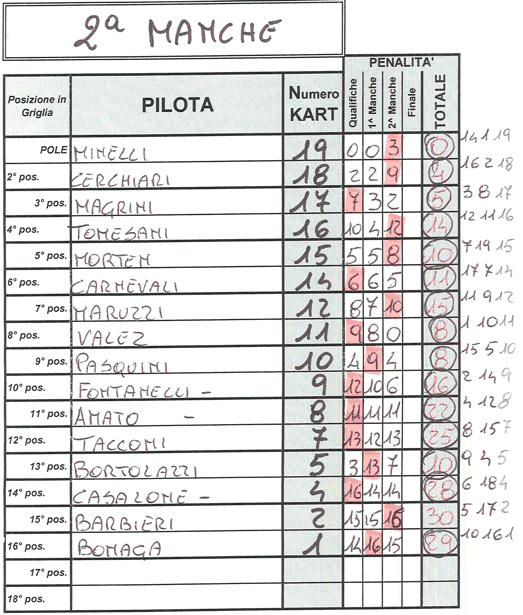 2ª MANCHE
PENALITA'
Posizione in Griglia PILOTA Numero KART Qualifiche 1^ Manche 2^ Manche Finale TOTALE
POLE MINELLI 19 0 0 3 0 14 1 19
2° pos. CERCHIARI 18 2 2 9 4 16 2 18
3° pos. MAGRINI 17 7 3 2 5 3 8 17
4° pos. TOMESANI 16 10 4 12 14 12 11 16
5° pos. MORTEN 15 5 5 8 10 7 19 15
6° pos. CARNEVALI 14 6 6 5 11 17 7 14
7° pos. MARUZZI 12 8 7 10 15 11 9 12
8° pos. VALEZ 11 9 8 0 8 1 10 11
9° pos. PASQUINI 10 4 9 4 8 15 5 10
10° pos. FONTANELLI - 9 12 10 6 16 2 14 9
11° pos. AMATO - 8 11 11 11 22 4 12 8
12° pos. TACCONI 7 13 12 13 25 8 15 7
13° pos. BORTOLAZZI 5 3 13 7 10 9 4 5
14° pos. CASALONE - 4 16 14 14 28 6 18 4
15° pos. BARBIERI 2 15 15 16 30 5 17 2
16° pos. BONAGA 1 14 16 15 29 10 16 1
17° pos.
18° pos.